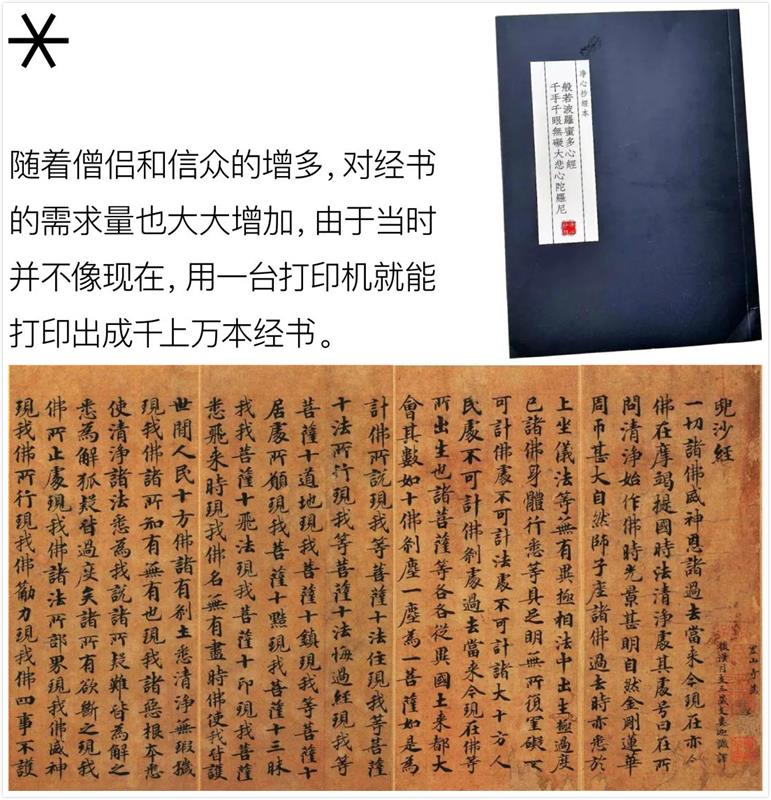 随着僧侣和信众的增多，对经书
的需求量也大大增加，由于当时
并不像现在，用一台打印机就能
打印出成千上万本经书。
净心抄經本
般若波羅蜜多心經
千手千眼無礙大悲心陀羅尼
兜沙經
後漢月支三藏支婁迦讖譯
一切諸佛威神恩諸過去當来今現在亦尒
佛在摩竭提國時法清淨處其處号曰在所
問清淨始作佛時光景甚明自然金剛蓮華
周帀甚大自然師子座諸佛過去時亦悉於
上坐儀法等無有異極相法中出生極過度
已諸佛身體行悉等具足明無所復罣礙
可計佛處不可計法處不可計諸大十方人
民處不可計佛剎處過去當来今現在佛等
所出生也諸菩薩等各各從異國土来都大
會其數如十佛剎塵一塵為一菩薩如是為
計佛所説現我等菩薩十法住現我等菩薩
十法所行現我等菩薩十法悔過經現我等
菩薩十道地現我等菩薩十鎮現我等菩薩十
居處所願現我菩薩十黠現我菩薩十三昧
我我菩薩十飛法現我菩薩十印現我菩薩
悉飛来時現我佛名無有盡時佛使我皆護
世間人民十方佛諸有剎土悉清淨無瑕穢
現我佛諸所知有無有也現我諸惡根本悉
使清淨諸法悉為我説諸所疑難皆為解之
悉為解狐疑皆過度矣諸所有欲斷之現我
佛所止處現我佛諸法所部界現我佛威神
現我佛所行現我佛勸力現我佛四事不護